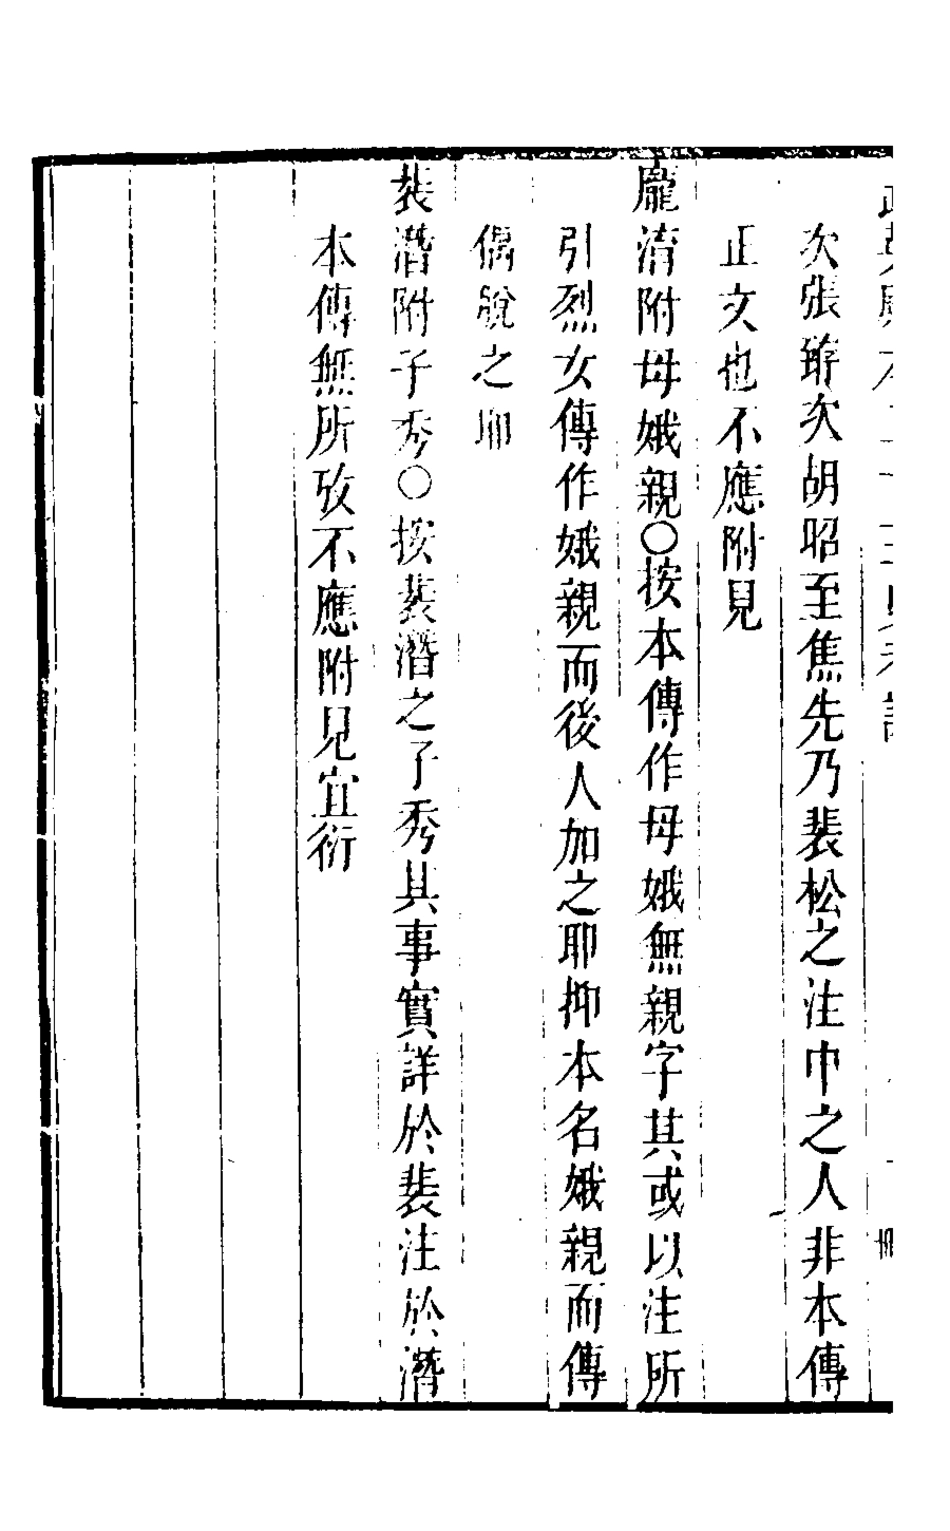 次張臶次胡昭至焦先乃裴松之注中之人非本傳
正文也不應附見
龐淯附母娥親○按本傳作母娥無親字其或以注所
引烈女傳作娥親而後人加之耶抑本名娥親而傳
偶脫之耶
裴潛附子秀○按裴潛之子秀其事實詳於裴注於潛
本傳無所攷不應附見宜衍